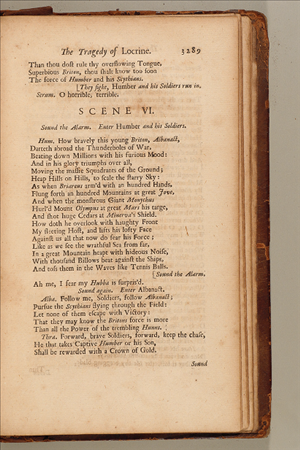 The Tragedy of Locrine. 3289
Than thou dost rule thy overflowing Tongue,
Superbious Briton, thou shalt know too soon
The force of Humber and his Scythians.
[They fight, Humber and his Soldiers run in.
Strum. O horrible, terrible.
SCENE VI.
Sound the Alarm. Enter Humber and his Soldiers.
Hum. How bravely this young Briton, Albanact,
Darteth abroad the Thunderbolts of War,
Beating down Millions with his furious Mood:
And in his glory triumphs over all,
Moving the massie Squadrants of the Ground;
Heap Hills on Hills, to scale the starry Sky:
As when Briareus arm'd with an hundred Hands,
Flung forth an hundred Mountains at great Jove.
And when the monstrous Giant Monychus
Hurl'd Mount Olympus at great Mars his targe,
And shot huge Cedars at Minerva's Shield.
How doth he overlook with haughty Front
My fleeting Host, and lifts his lofty Face
Against us all that now do fear his Force:
Like as we see the wrathful Sea from far,
In a great Mountain heapt with hideous Noise,
With thousand Billows beat against the Ships,
And toss them in the Waves like Tennis Balls.
[Sound the Alarm.
Ah me, I fear my Hubba is surpris'd.
Sound again. Enter Albanact.
Alba. Follow me, Soldiers, follow Albanact;
Pursue the Scythians flying through the Field:
Let none of them escape with Victory:
That they may know the Britons force is more
Than all the Power of the trembling Hunns.
Thra. Forward, brave Soldiers, forward, keep the chase,
He that takes Captive Humber or his Son,
Shall be rewarded with a Crown of Gold.
Sound